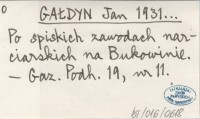 0
GAŁDYN Jan 1931...
Po spiskich zawodach nar-
ciarskich na Bukowinie.
- Gaz. Podh. 19, nr 11.